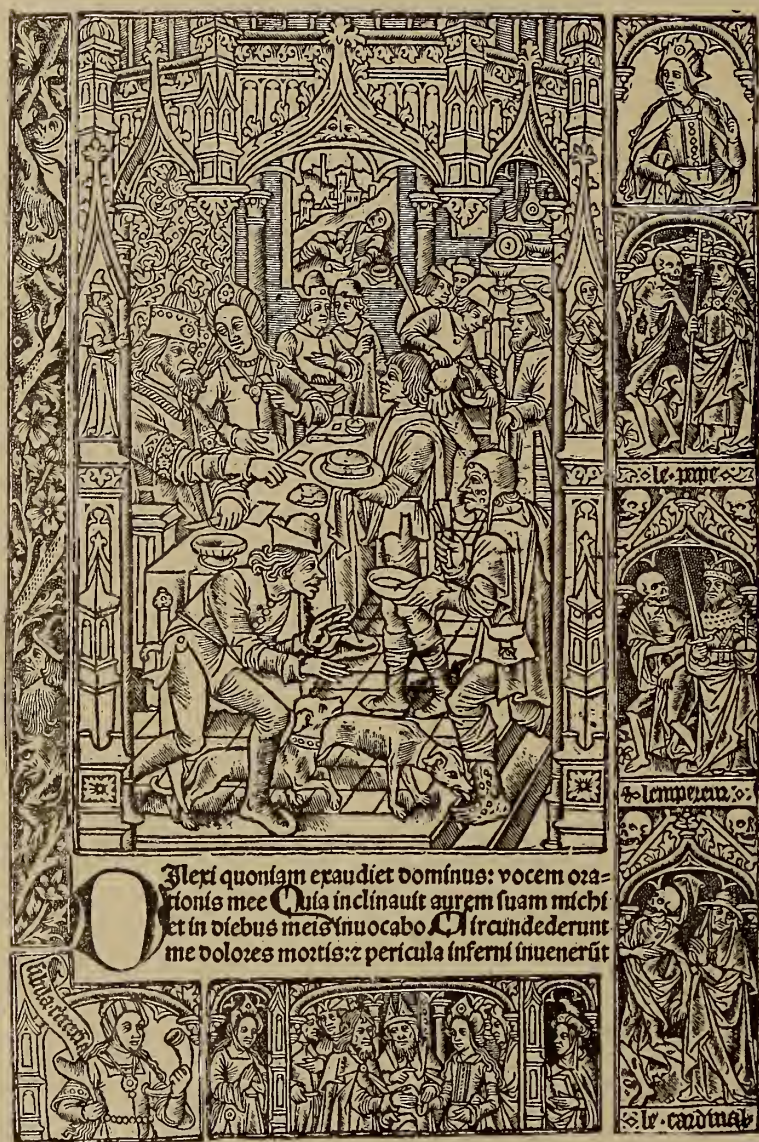 DIlexi quoniam exaudiet dominus: vocem ora=
tionis mee Quia inclinauit aurem suam michi
et in diebus meis inuocabo Circundederunt
me dolores mortis:⁊ pericula inferni inuenerūt
le·pape
lempereur
le·cardinal